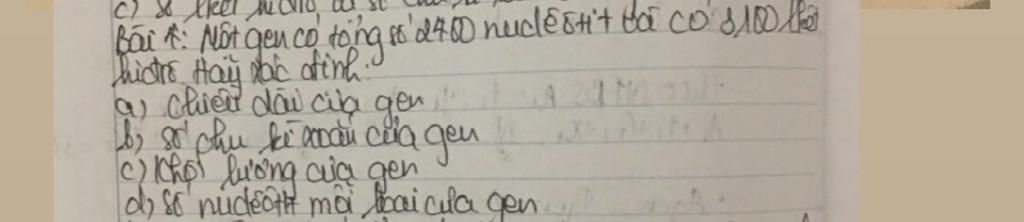 c) số
Bài 1: Một gen có tổng số 2400 nuclêôtit và có 3100 liên
hiđrô. Hãy xác định:
a) Chiều dài của gen
b) số chu kì xoắn của gen
c) Khối lượng của gen
d) số nuclêôtit mỗi loại của gen